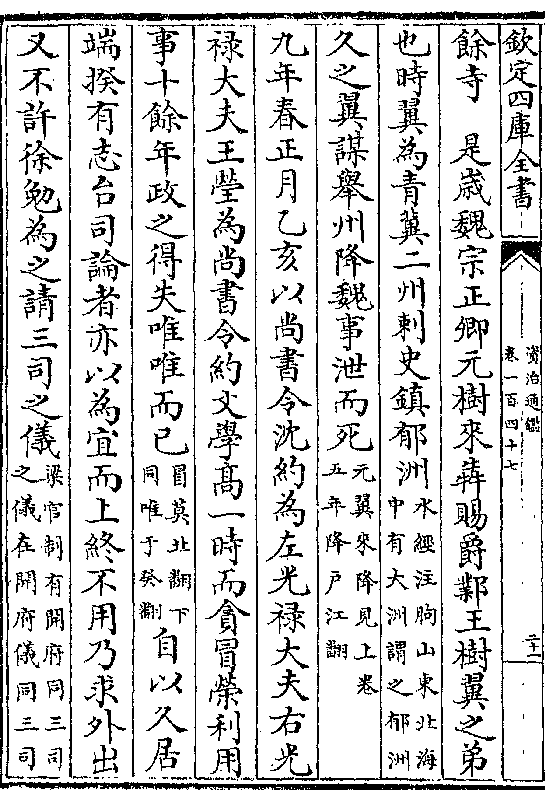 欽定四庫全書
資治通鑑
卷一百四十七
三十一
餘寺　是歲魏宗正卿元樹來犇賜爵鄴王樹翼之弟
也時翼為青冀二州刺史鎮郁洲
水經注朐山東北海
中有大洲謂之郁洲
久之翼謀舉州降魏事泄而死
元翼來降見上卷
五年降戸江翻
九年春正月乙亥以尚書令沈約為左光禄大夫右光
禄大夫王瑩為尚書令約文學髙一時而貪冒榮利用
事十餘年政之得失唯唯而已
冒莫北翻下
同唯于癸翻
自以久居
端揆有志台司論者亦以為宜而上終不用乃求外出
又不許徐勉為之請三司之儀
梁官制有開府同三司
之儀在開府儀同三司